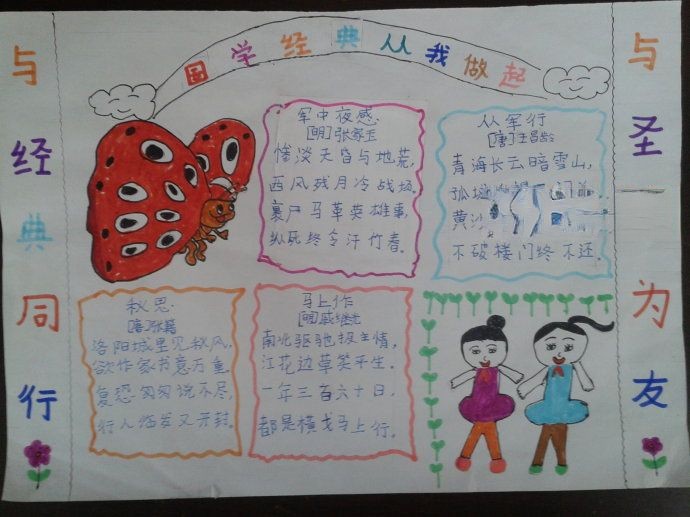 国学经典从我做起
与经典同行
军中夜感
[明]张家玉
惨淡天昏与地荒,
西风残月冷战场,
裹尸马革英雄事,
纵死终令汗竹香。
从军行
[唐]王昌龄
青海长云暗雪山,
孤城
黄沙
不破楼门终不还。
秋思
[唐]张籍
洛阳城里见秋风,
欲作家书意万重
复恐匆匆说不尽,
行人临发又开封。
马上作
[明]戚继光
南北驱驰报主情,
江花边草笑平生。
一年三百六十日,
都是横戈马上行。
与圣一为友